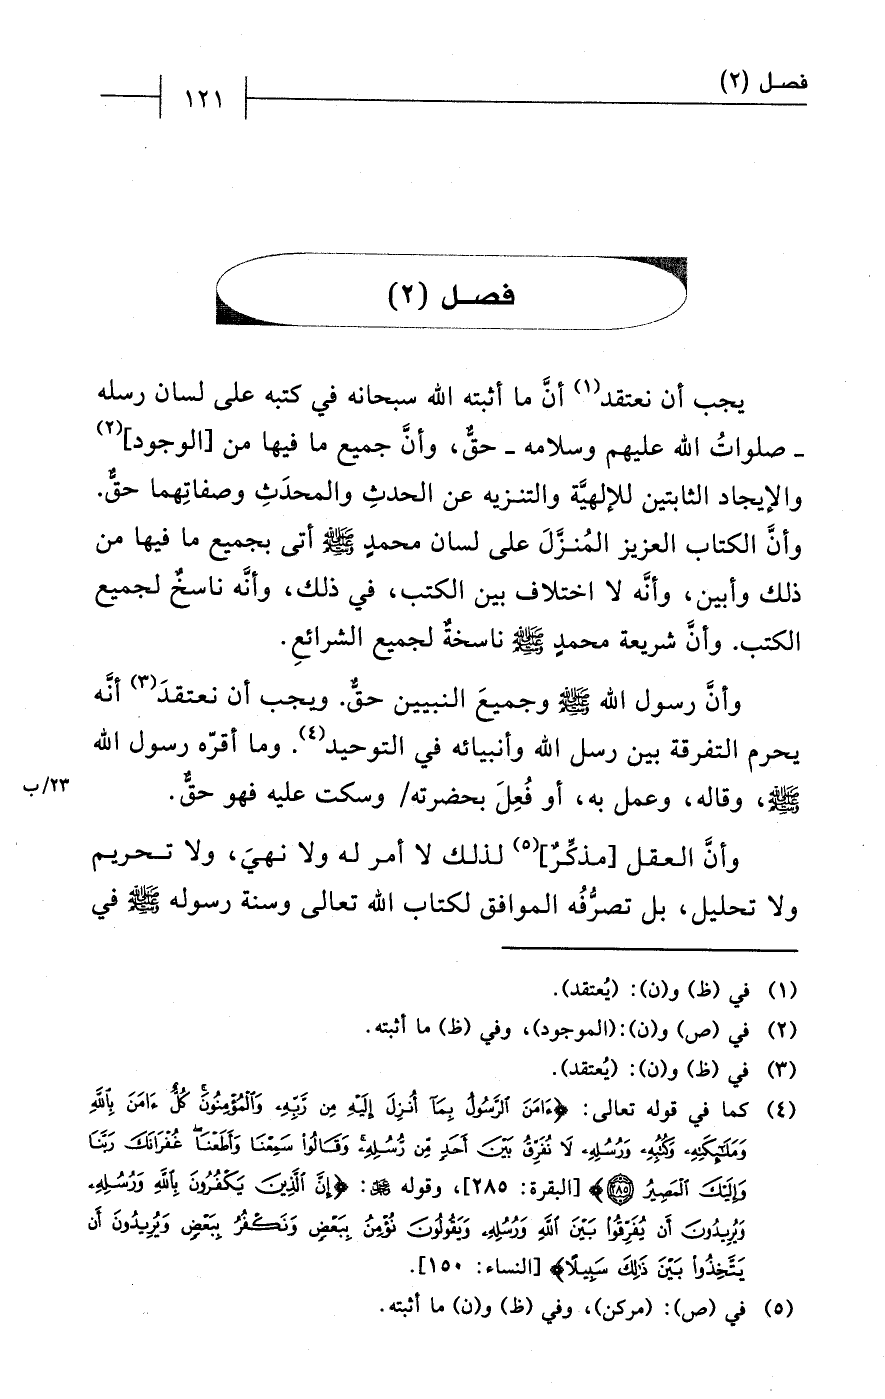 فصل (٢)
١٢١
فصل (٢)
يجب أن نعتقد(١) أنَّ ما أثبته الله سبحانه في كتبه على لسان رسله
ـ صلواتُ الله عليهم وسلامه ـ حقٌّ، وأنَّ جميع ما فيها من [الوجود](٢)
والإيجاد الثابتين للإلهيَّة والتنزيه عن الحدثِ والمحدَثِ وصفاتِهما حقٌّ.
وأنَّ الكتاب العزيز المُنزَّلَ على لسان محمدٍ ﷺ أتى بجميع ما فيها من
ذلك وأبين، وأنَّه لا اختلاف بين الكتب، في ذلك، وأنَّه ناسخٌ لجميع
الكتب. وأنَّ شريعة محمدٍ ﷺ ناسخةٌ لجميع الشرائعِ.
وأنَّ رسول الله ﷺ وجميعَ النبيين حقٌّ. ويجب أن نعتقدَ(٣) أنَّه
يحرم التفرقة بين رسل الله وأنبيائه في التوحيد(٤). وما أقرّه رسول الله
ﷺ، وقاله، وعمل به، أو فُعِلَ بحضرته/ وسكت عليه فهو حقٌّ.
٢٣/ب
وأنَّ العقل [مذكِّرٌ](٥) لذلك لا أمر له ولا نهيَ، ولا تحريم
ولا تحليل، بل تصرُّفُه الموافق لكتاب الله تعالى وسنة رسوله ﷺ في
(١) في (ظ) و(ن): (يُعتقد).
(٢) في (ص) و(ن):(الموجود)، وفي (ظ) ما أثبته.
(٣) في (ظ) و(ن): (يُعتقد).
(٤) كما في قوله تعالى: ﴿ءَامَنَ ٱلرَّسُولُ بِمَآ أُنزِلَ إِلَيْهِ مِن رَّبِّهِۦ وَٱلْمُؤْمِنُونَۚ كُلٌّ ءَامَنَ بِٱللَّهِ
وَمَلَـٰٓئِكَتِهِۦ وَكُتُبِهِۦ وَرُسُلِهِۦ لَا نُفَرِّقُ بَيْنَ أَحَدٍ مِّن رُّسُلِهِۦۚ وَقَالُوا۟ سَمِعْنَا وَأَطَعْنَاۖ غُفْرَانَكَ رَبَّنَا
وَإِلَيْكَ ٱلْمَصِيرُ ﴿٢٨٥﴾﴾ [البقرة: ٢٨٥]، وقوله ﷻ: ﴿إِنَّ ٱلَّذِينَ يَكْفُرُونَ بِٱللَّهِ وَرُسُلِهِۦ
وَيُرِيدُونَ أَن يُفَرِّقُوا۟ بَيْنَ ٱللَّهِ وَرُسُلِهِۦ وَيَقُولُونَ نُؤْمِنُ بِبَعْضٍ وَنَكْفُرُ بِبَعْضٍ وَيُرِيدُونَ أَن
يَتَّخِذُوا۟ بَيْنَ ذَٰلِكَ سَبِيلًا﴾ [النساء: ١٥٠].
(٥) في (ص): (مركن)، وفي (ظ) و(ن) ما أثبته.